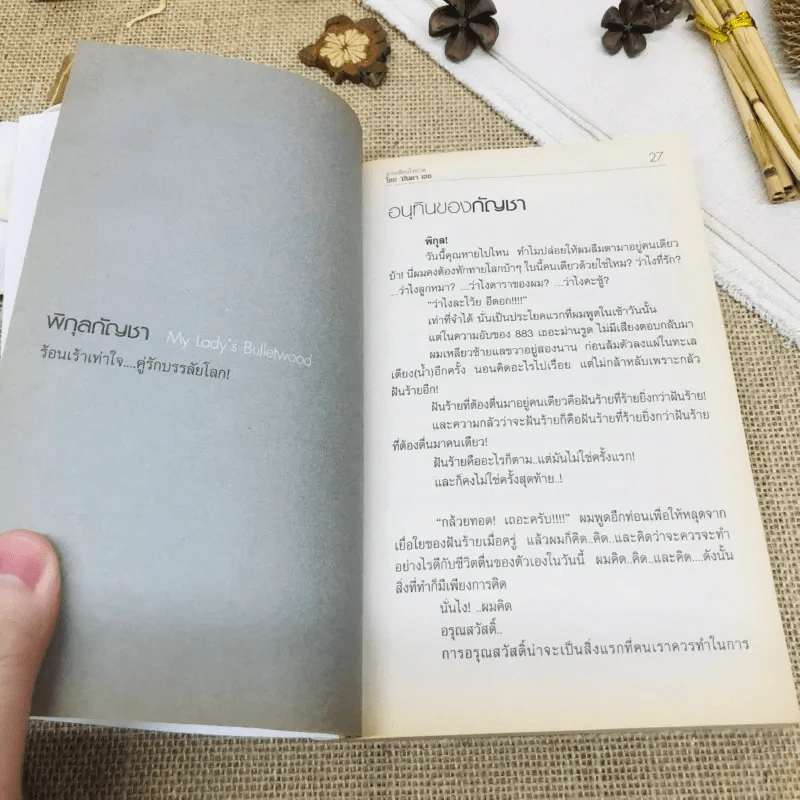 พิกุลกัญชา My Lady's Bulletwood
ร้อนเร้าเท่าใจ....คู่รักบรรลัยโลก!
27
โดย วันดา เอย
อนุทินของกัญชา
พิกุล!
วันนี้คุณหายไปไหน ทำไมปล่อยให้ผมลืมตามาอยู่คนเดียว
บ้า! นี่ผมคงต้องทักทายโลกบ้าๆ ใบนี้คนเดียวด้วยใช่ไหม? ว่าไงที่รัก?
....ว่าไงลูกหมา? ....ว่าไงดาราของผม? ....ว่าไงคะชู้?
"ว่าไงละโว้ย อีดอก!!!!"
เท่าที่จำได้ นั่นเป็นประโยคแรกที่ผมพูดในเช้าวันนั้น
แต่ในความอับของ 883 เธอะม่านรูด ไม่มีเสียงตอบกลับมา
ผมเหลียวซ้ายแลขวาอยู่สองนาน ก่อนล้มตัวลงแผ่ในทะเล
เตียง(น้ำ)อีกครั้ง นอนคิดอะไรไปเรื่อย แต่ไม่กล้าหลับเพราะกลัว
ฝันร้ายอีก!
ฝันร้ายที่ต้องตื่นมาอยู่คนเดียวคือฝันร้ายที่ร้ายยิ่งกว่าฝันร้าย!
และความกลัวว่าจะฝันร้ายก็คือฝันร้ายที่ร้ายยิ่งกว่าฝันร้าย
ที่ต้องตื่นมาคนเดียว!
ฝันร้ายคืออะไรก็ตาม..แต่มันไม่ใช่ครั้งแรก!
และก็คงไม่ใช่ครั้งสุดท้าย..!
"กล้วยทอด! เถอะครับ!!!!" ผมพูดอีกท่อนเพื่อให้หลุดจาก
เยื่อใยของฝันร้ายเมื่อครู่ แล้วผมก็คิด..คิด..และคิดว่าจะควรจะทำ
อย่างไรดีกับชีวิตตื่นของตัวเองในวันนี้ ผมคิด..คิด..และคิด....ดังนั้น
สิ่งที่ทำก็มีเพียงการคิด
นั่นไง! ..ผมคิด
อรุณสวัสดิ์..
การอรุณสวัสดิ์น่าจะเป็นสิ่งแรกที่คนเราควรทำในการ